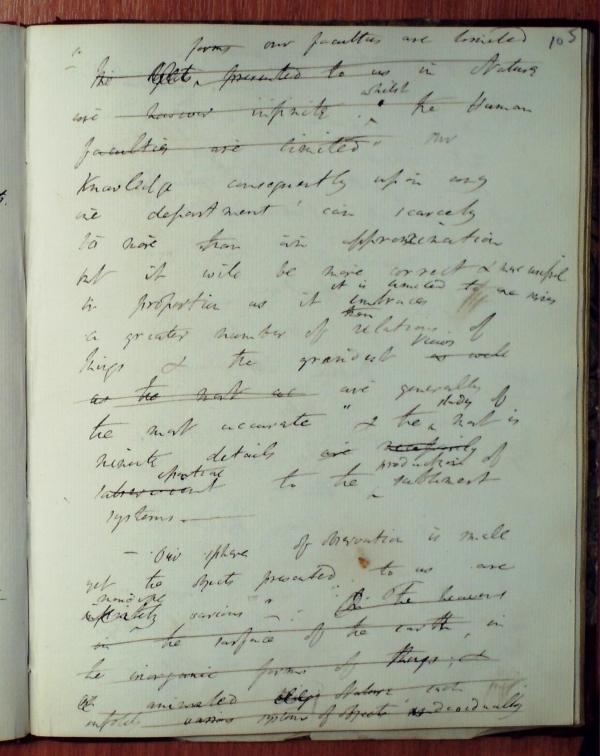 105
forms our faculties are limited
the presented to us in Nature
are however infinite whilst the Human
faculties are limited our
Knowledge consequently upon any
one department can scarcely
be more than an approximation
but it will be more correct & more useful
it is limited to
in proportion as it embraces
a greater number of relations of
things & the grandest views as well
as the most are generally
the most accurate & the study of most
minute details are necessarily
subservient to the production of sublimest
systems.
– Our sphere of observation is small
yet the objects presented to us are
various On the heavens
in the surface of the earth, in
the inorganic forms of things &
animated Nature each
unfolds various systems of objects individually